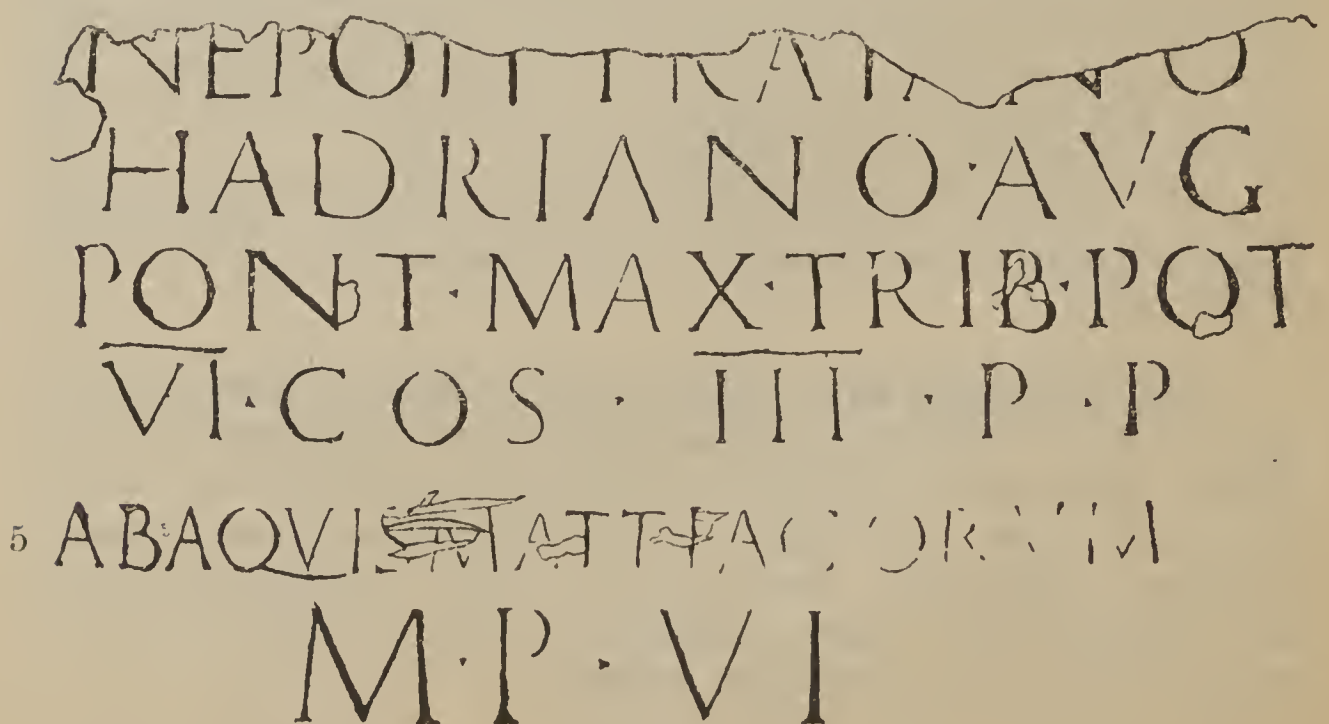 NEPOTI TRAIANO
HADRIANO · AVG
PONT · MAX · TRIB · POT
VI · COS · III · P · P
5 AB AQVIS MATTIACORVM
M · P · VI